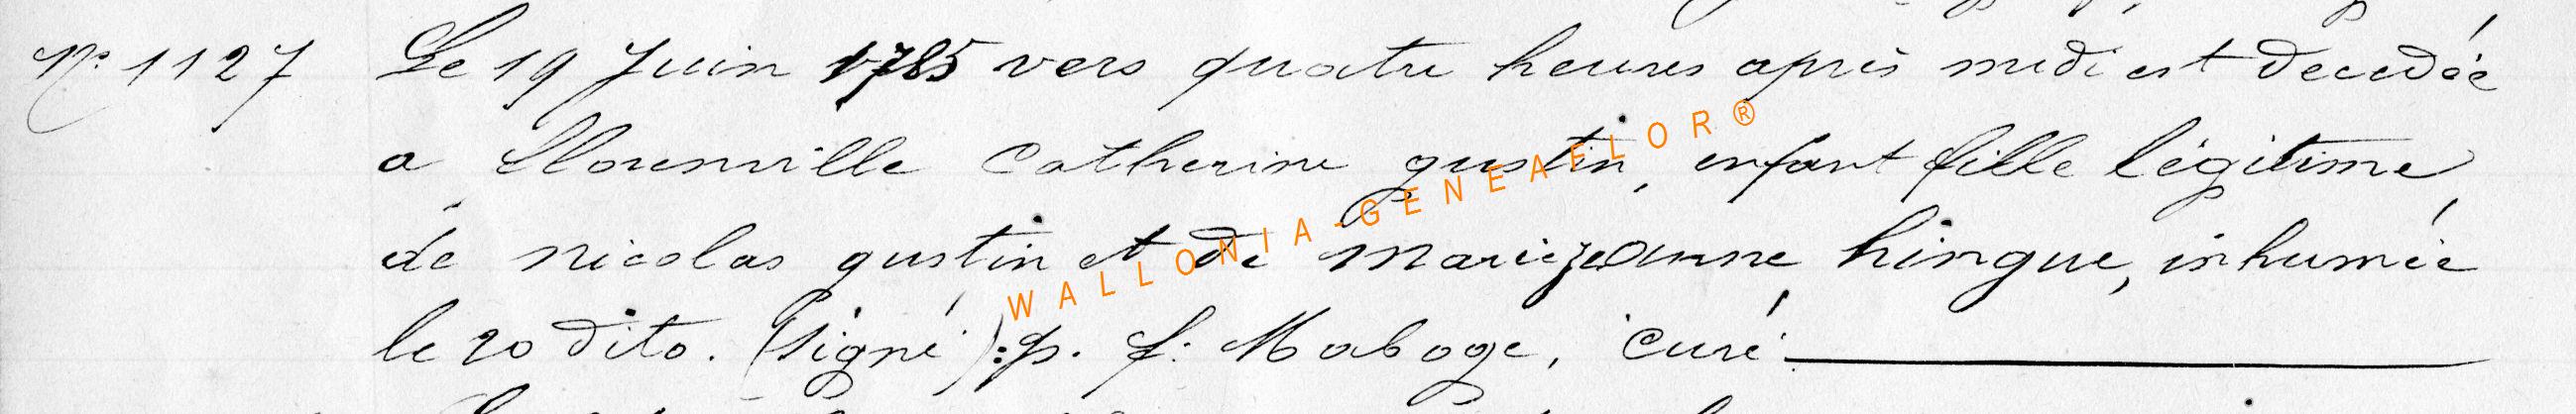 N° 1127 Le 19 Juin 1785 vers quatre heures après midi est decedée
a Florenville Catherine gustin, enfant fille légitime
de nicolas gustin et de mariejeanne hingue, inhumée
le 20 dito. (signé): p. f. Maboge, Curé.
WALLONIA-GENEAFLOR®